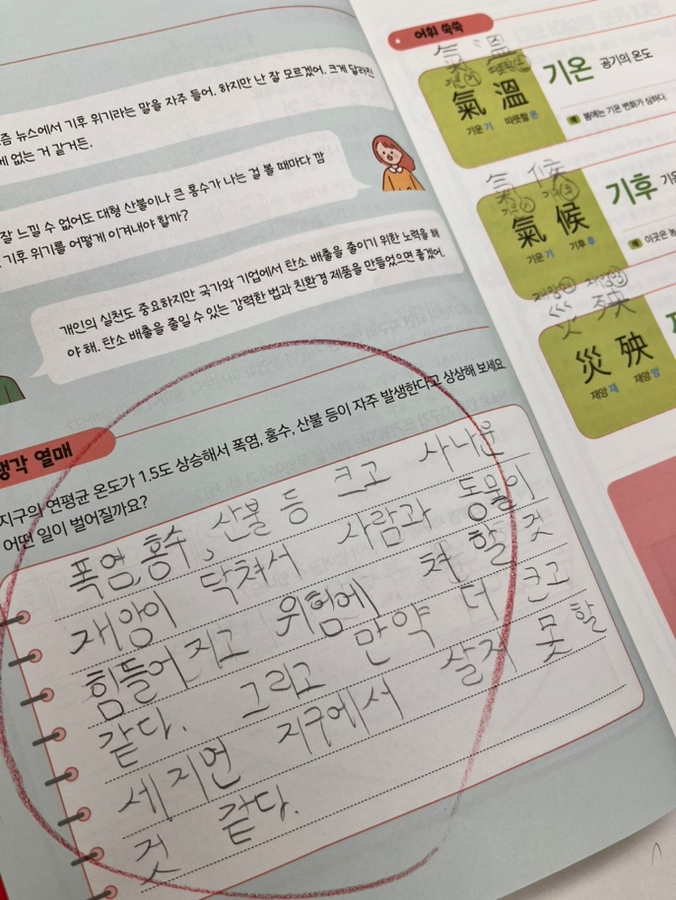 즘 뉴스에서 기후 위기라는 말을 자주 들어. 하지만 난 잘 모르겠어. 크게 달라진
게 없는 거 같거든.
잘 느낄 수 없어도 대형 산불이나 큰 홍수가 나는 걸 볼 때마다 깜
기후 위기를 어떻게 이겨내야 할까?
개인의 실천도 중요하지만 국가와 기업에서 탄소 배출을 줄이기 위한 노력을 해
야 해. 탄소 배출을 줄일 수 있는 강력한 법과 친환경 제품을 만들었으면 좋겠어.
생각 열매
지구의 연평균 온도가 1.5도 상승해서 폭염, 홍수, 산불 등이 자주 발생한다고 상상해 보세요
어떤 일이 벌어질까요?
폭염, 홍수, 산불 등 크고 사나운
재앙이 닥쳐서 사람과 동물이
힘들어지고 위험에 처할 것
같다. 그리고 만약 더 크고
세지면 지구에서 살지 못할
것 같다.
어휘 쑥쑥
氣 溫
氣 溫
기운 기 따뜻할 온
기온 공기의 온도
예 봄에는 기온 변화가 심하다.
氣 候
氣 候
기운 기 기후 후
기후 기온
예 이곳은 농
災 殃
災 殃
재앙 재 재앙 앙